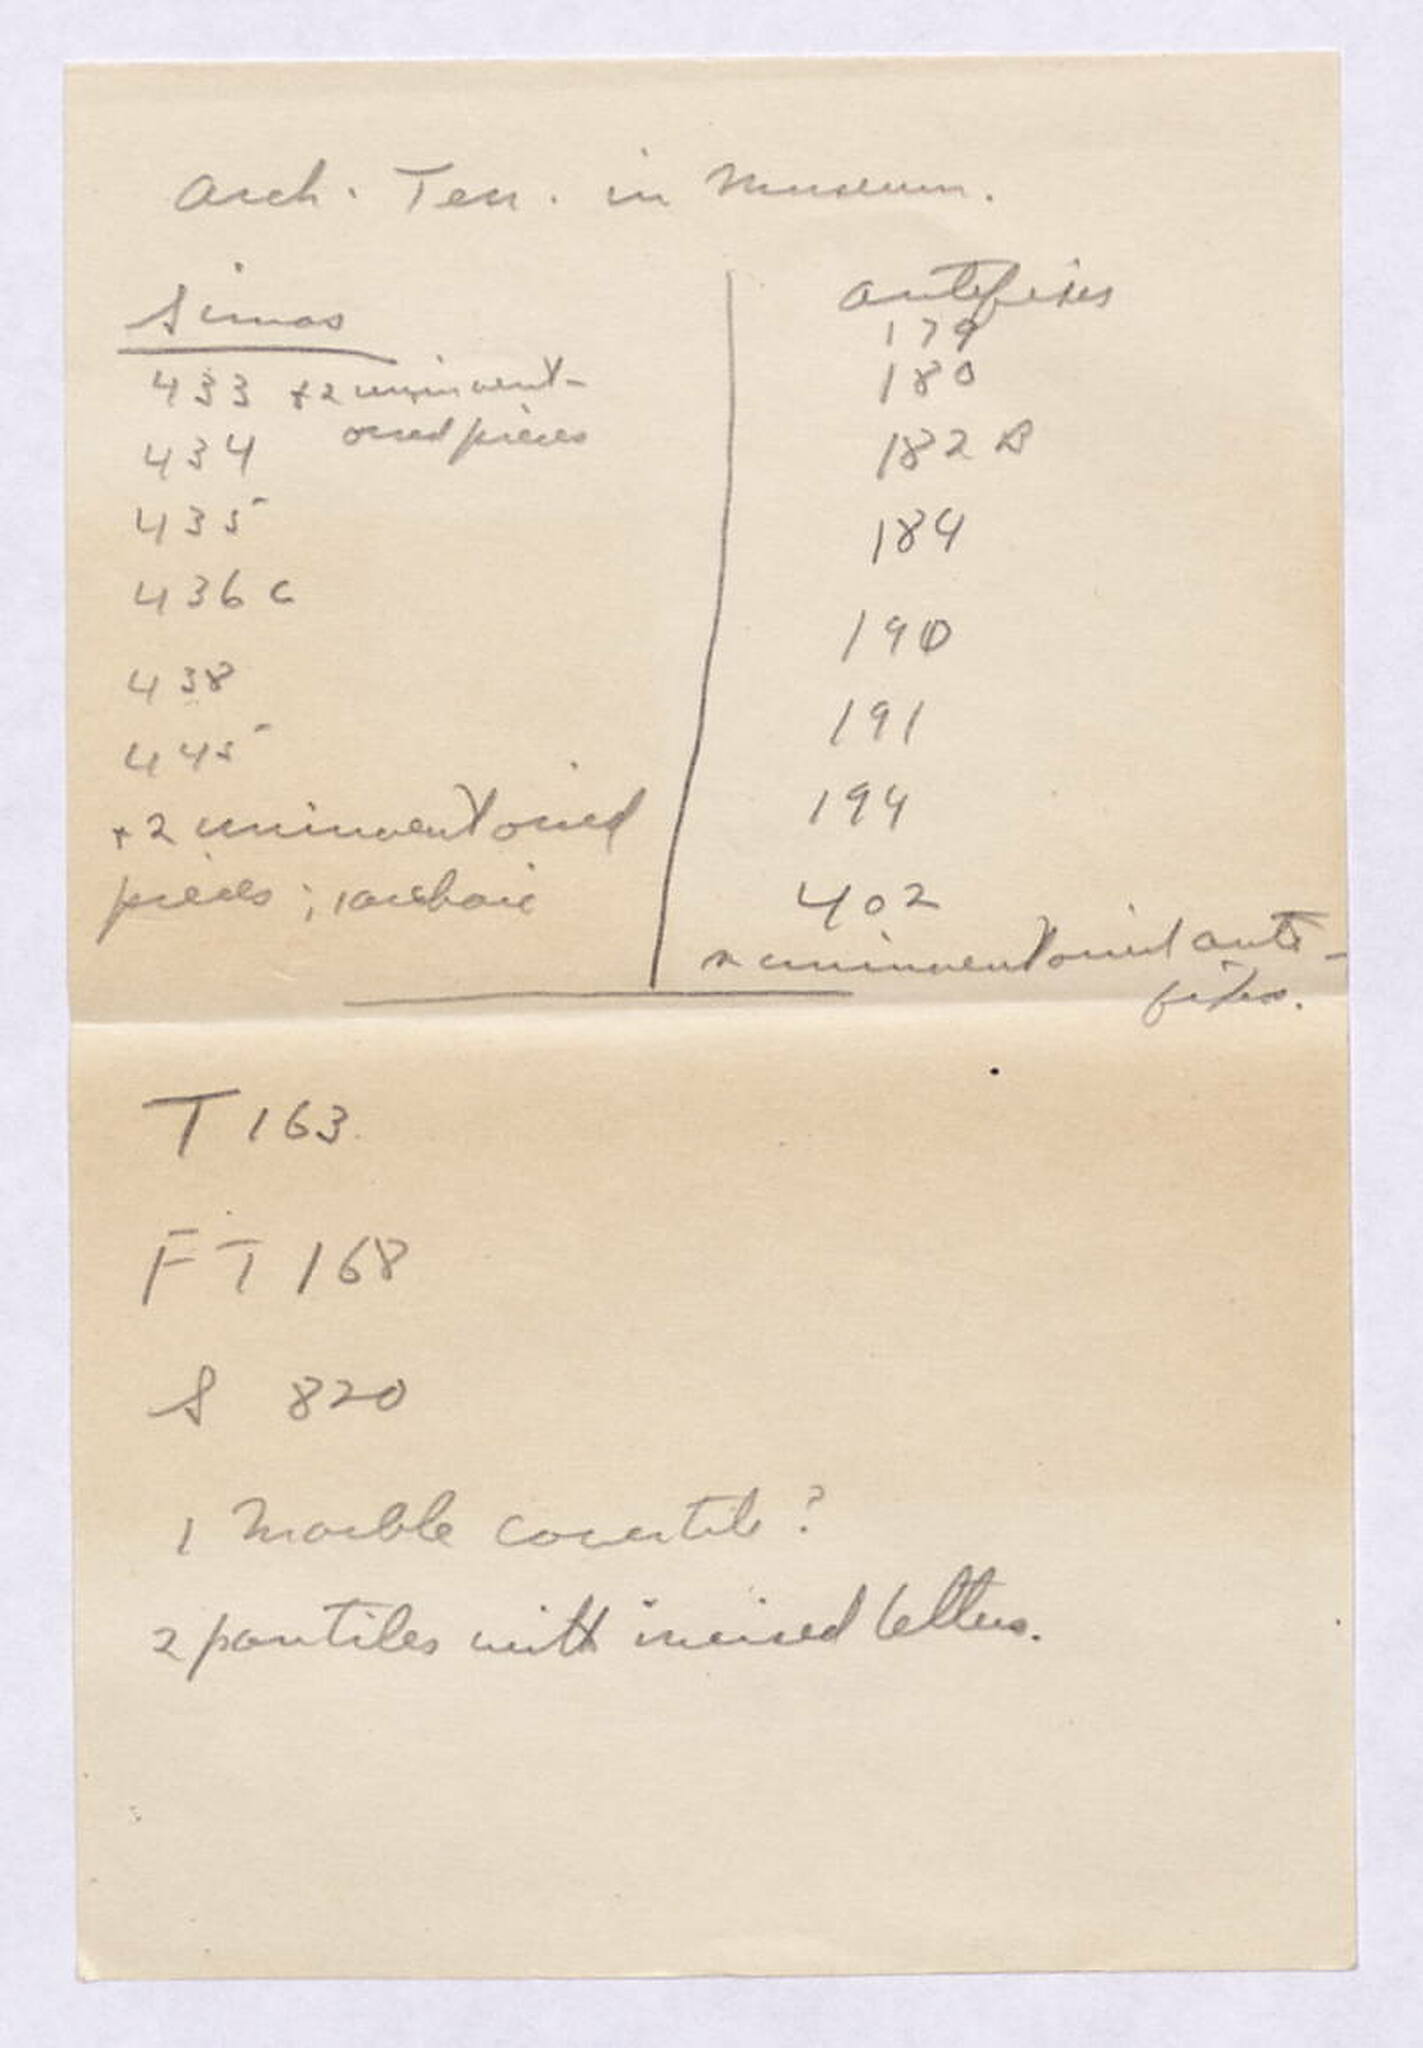 Arch. Terr. in Museum.
Simas
433 + 2 uninvent-
oried pieces
434
435
436 c
438
445
+ 2 uninventoried
pieces; 1 archaic
antefixes
179
180
182 B
184
190
191
194
402
2 uninventoried ante-
fixes.
T 163
FT 168
S 820
1 Marble covertile?
2 pantiles with incised letters.